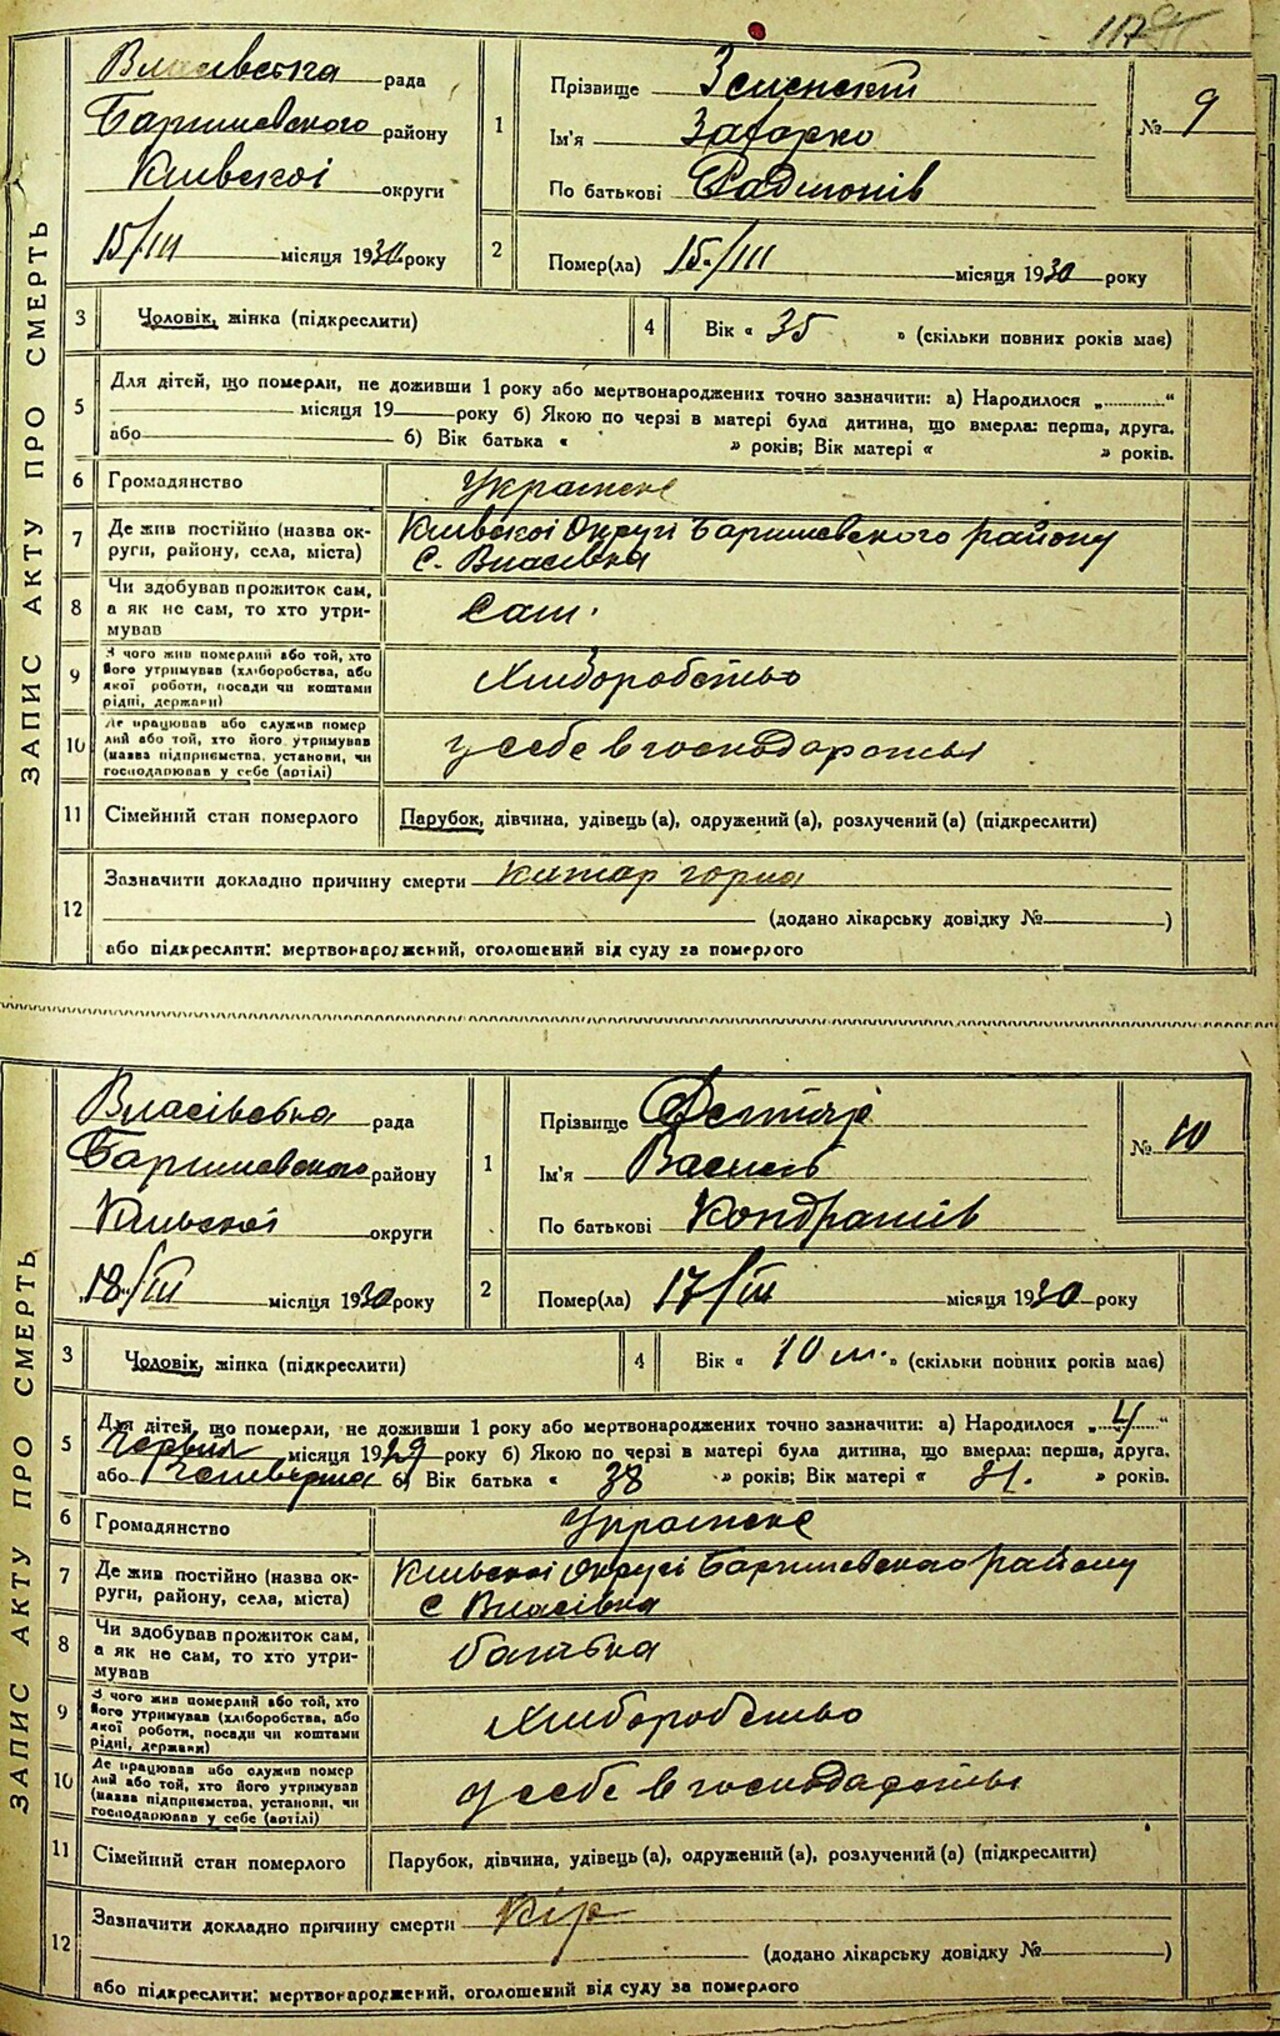 117
ЗАПИС АКТУ ПРО СМЕРТЬ
Власівська рада
Баришевского району
Київскоі округи
15/III місяця 1930 року
1 Прізвище
Ім'я Захарко
По батькові
№ 9
2 Помер(ла) 15/III місяця 1930 року
3 Чоловік, жінка (підкреслити)
4 Вік « 35 » (скільки повних років має)
5 Для дітей, що померли, не доживши 1 року або мертвонароджених точно зазначити: а) Народилося „ “
місяця 19 року б) Якою по черзі в матері була дитина, що вмерла: перша, друга.
або б) Вік батька « » років; Вік матері « » років.
6 Громадянство Украінске
7 Де жив постійно (назва ок-
руги, району, села, міста)
Київскоі Округи Баришевского району
с. Власівка
8 Чи здобував прожиток сам,
а як не сам, то хто утри-
мував
Сам.
9 З чого жив померлий або той, хто
його утримував (хліборобства, або
якої роботи, посади чи коштами
рідні, держави)
Хліборобство
10 Де працював або служив помер
лий або той, хто його утримував
(назва підприємства, установи, чи
господарював у себе (артілі)
у себе в господарстві
11 Сімейний стан померлого Парубок, дівчина, удівець (а), одружений (а), розлучений (а) (підкреслити)
12 Зазначити докладно причину смерти Катар горла
(додано лікарську довідку № )
або підкреслити: мертвонароджений, оголошений від суду за померлого
ЗАПИС АКТУ ПРО СМЕРТЬ
Власівська рада
Баришевского району
Київскоі округи
„18“/III місяця 1930 року
1 Прізвище
Ім'я Василь
По батькові Кондратів
№ 10
2 Помер(ла) 17/III місяця 1930 року
3 Чоловік, жінка (підкреслити)
4 Вік « 10 м. » (скільки повних років має)
5 Для дітей, що померли, не доживши 1 року або мертвонароджених точно зазначити: а) Народилося „ 4 “
Червня місяця 1929 року б) Якою по черзі в матері була дитина, що вмерла: перша, друга.
або Четверта б) Вік батька « 38 » років; Вік матері « 31. » років.
6 Громадянство Украінске
7 Де жив постійно (назва ок-
руги, району, села, міста)
Київскоі Округі Баришевского району
с Власівка
8 Чи здобував прожиток сам,
а як не сам, то хто утри-
мував
батька
9 З чого жив померлий або той, хто
його утримував (хліборобства, або
якої роботи, посади чи коштами
рідні, держави)
Хліборобство
10 Де працював або служив помер
лий або той, хто його утримував
(назва підприємства, установи, чи
господарював у себе (артілі)
у себе в господарстві
11 Сімейний стан померлого Парубок, дівчина, удівець (а), одружений (а), розлучений (а) (підкреслити)
12 Зазначити докладно причину смерти Кір
(додано лікарську довідку № )
або підкреслити: мертвонароджений, оголошений від суду за померлого